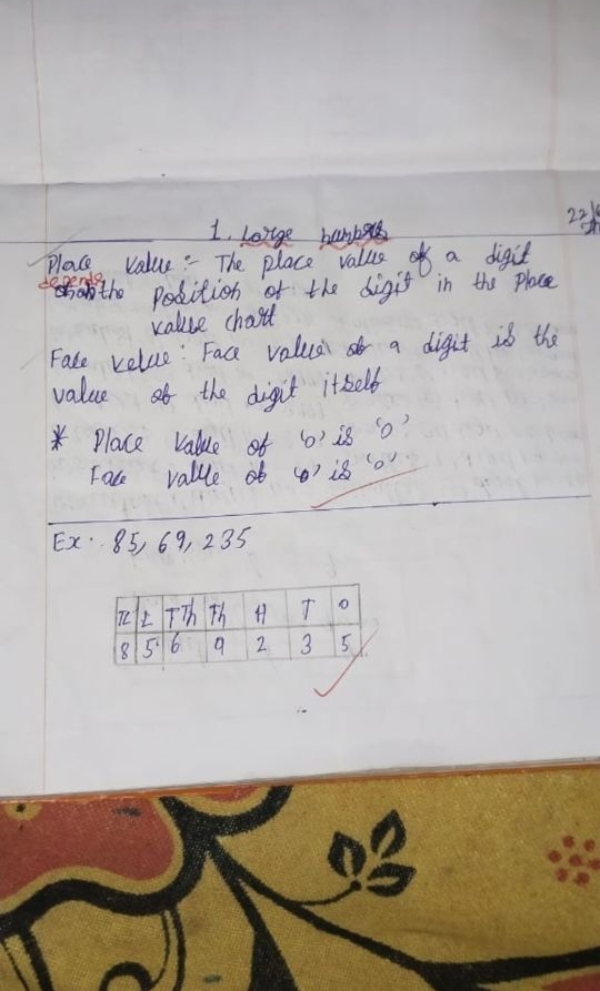 22/
1. Large numbers
Place Value :- The place value of a digit
depends
on the Position of the digit in the Place
value chart
Face value : Face value of a digit is the
value of the digit itself
* Place Value of '0' is '0'
Face value of '0' is '0'
Ex :. 85, 69, 235
TL L TTh Th H T O
8 5 6 9 2 3 5